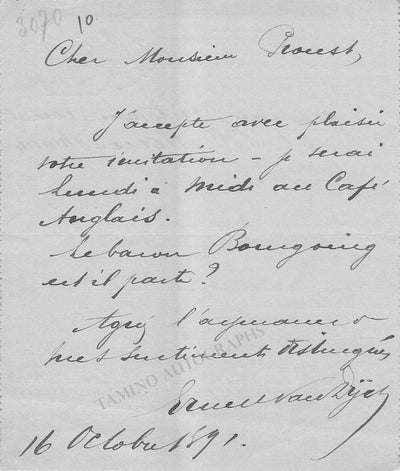 3070
10
Cher Monsieur Proust,
J'accepte avec plaisir
votre invitation - je serai
lundi à midi au Café
Anglais.
Le baron Bourgoing
est il parti ?
Agréez l'assurance de
mes sentiments distingués
TAMINO AUTOGRAPHS
Ernest Van Dÿck
16 Octobre 1891.